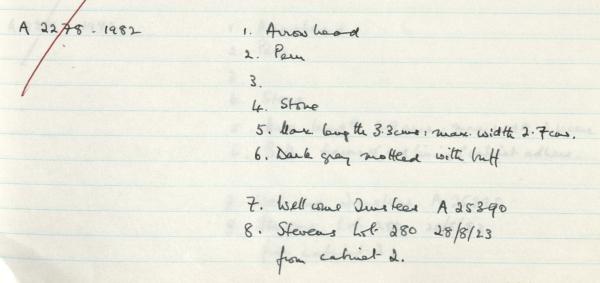 A 2278.1982
1. Arrowhead
2. Peru
3.
4. Stone
5. Max length 3.3cms; max. width 2.7cm.
6. Dark grey mottled with buff
7. Wellcome Trustees A 25390
8. Stevens Lot 280 28/8/23
from cabinet 2.